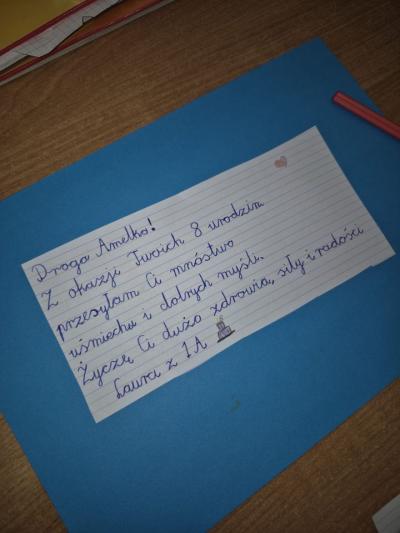 Droga Amelko!
Z okazji Twoich 8 urodzin
przesyłam Ci mnóstwo
uśmiechu i dobrych myśli.
Życzę Ci dużo zdrowia, siły i radości
Laura z 1A